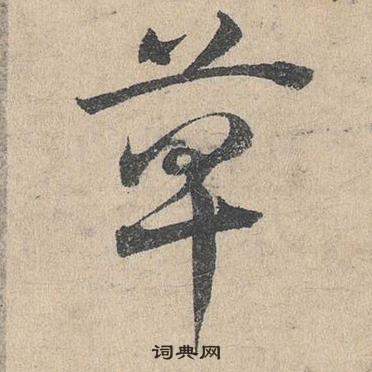 草
词典网